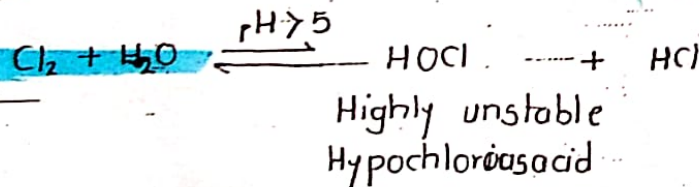 pH > 5
Cl₂ + H₂O ⇌ HOCl + HCl
Highly unstable
Hypochloroasacid